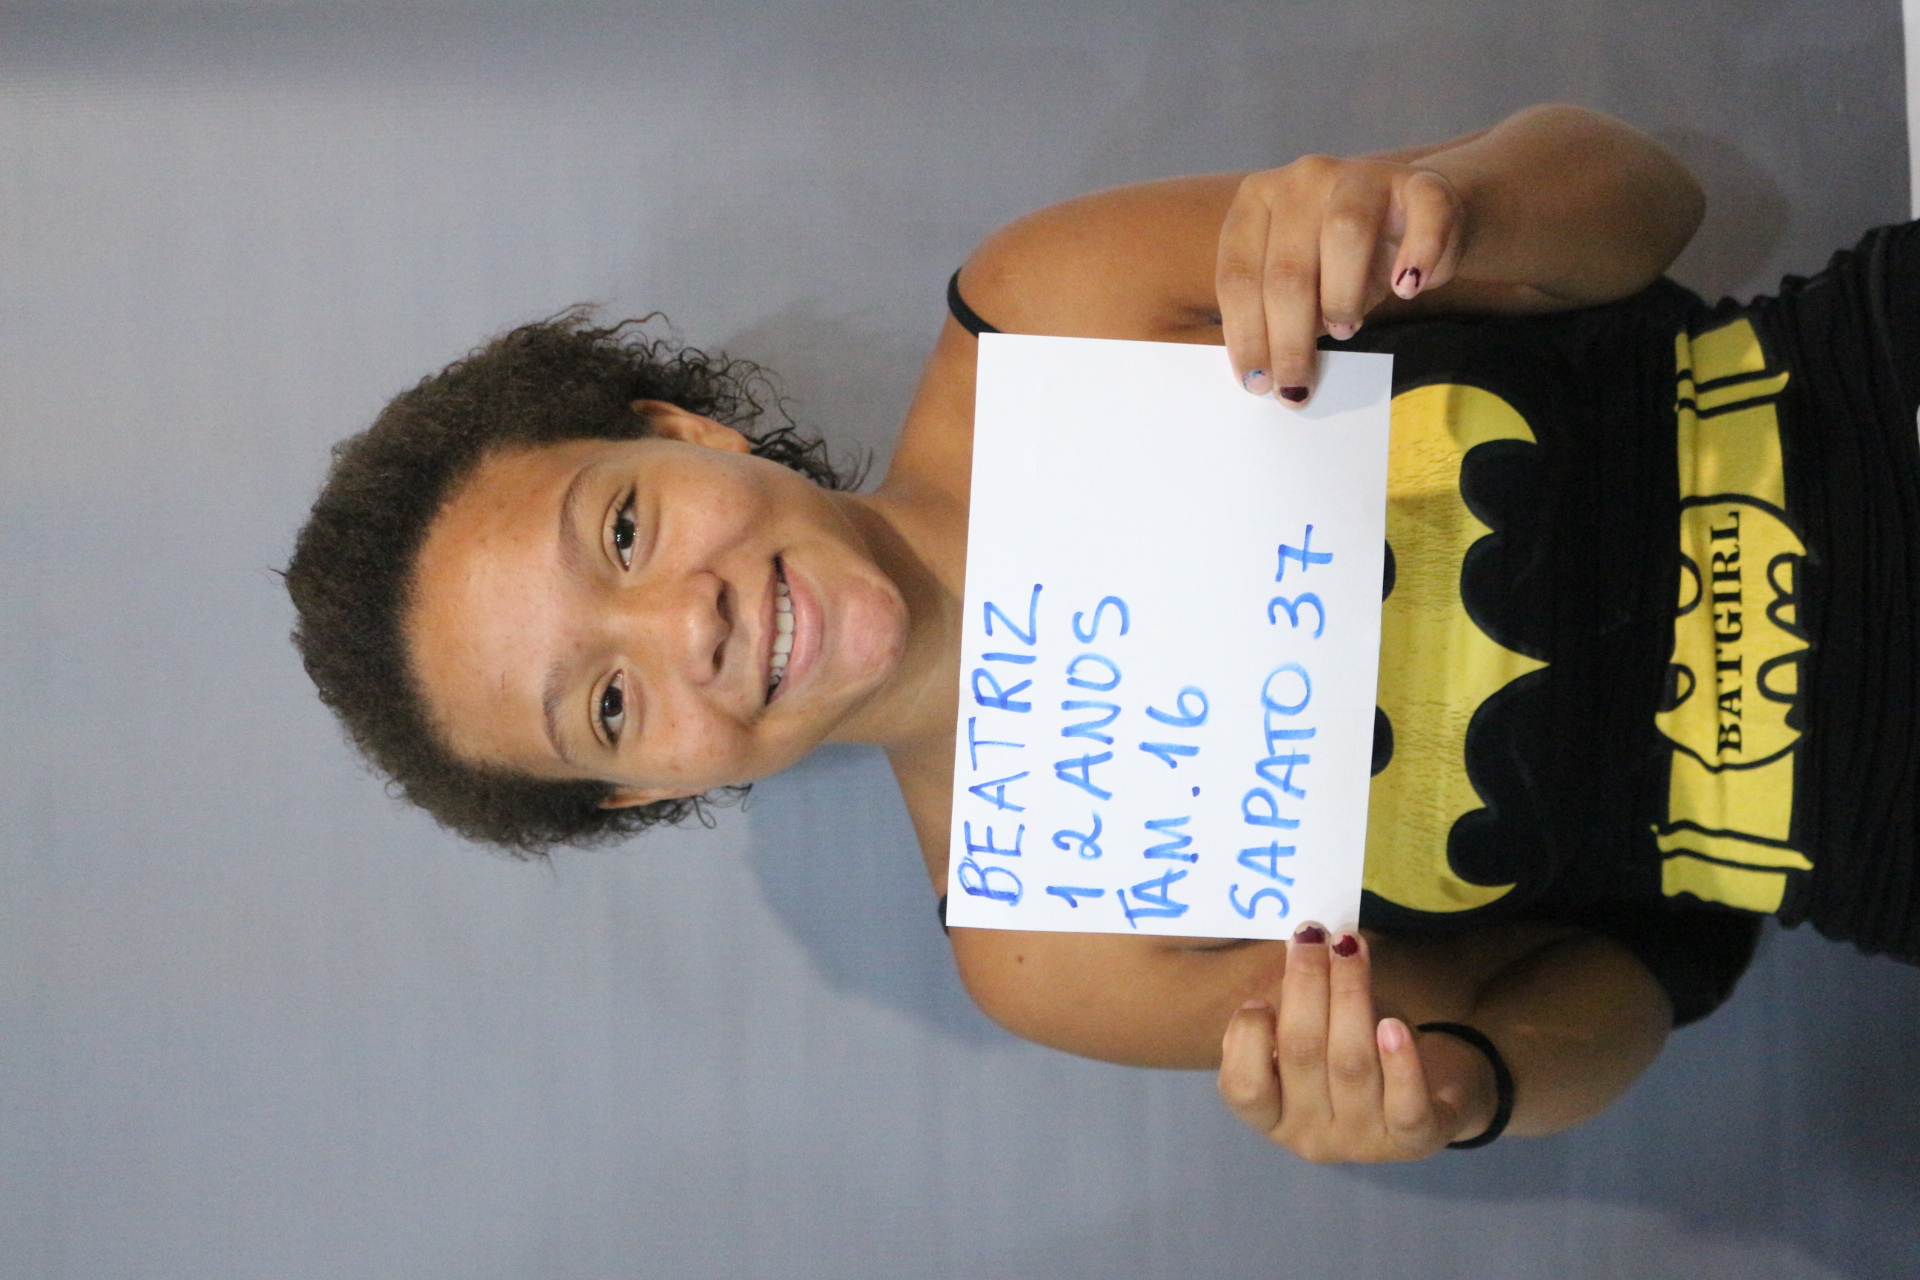 BEATRIZ
12 ANOS
TAM. 16
SAPATO 37
BATGIRL